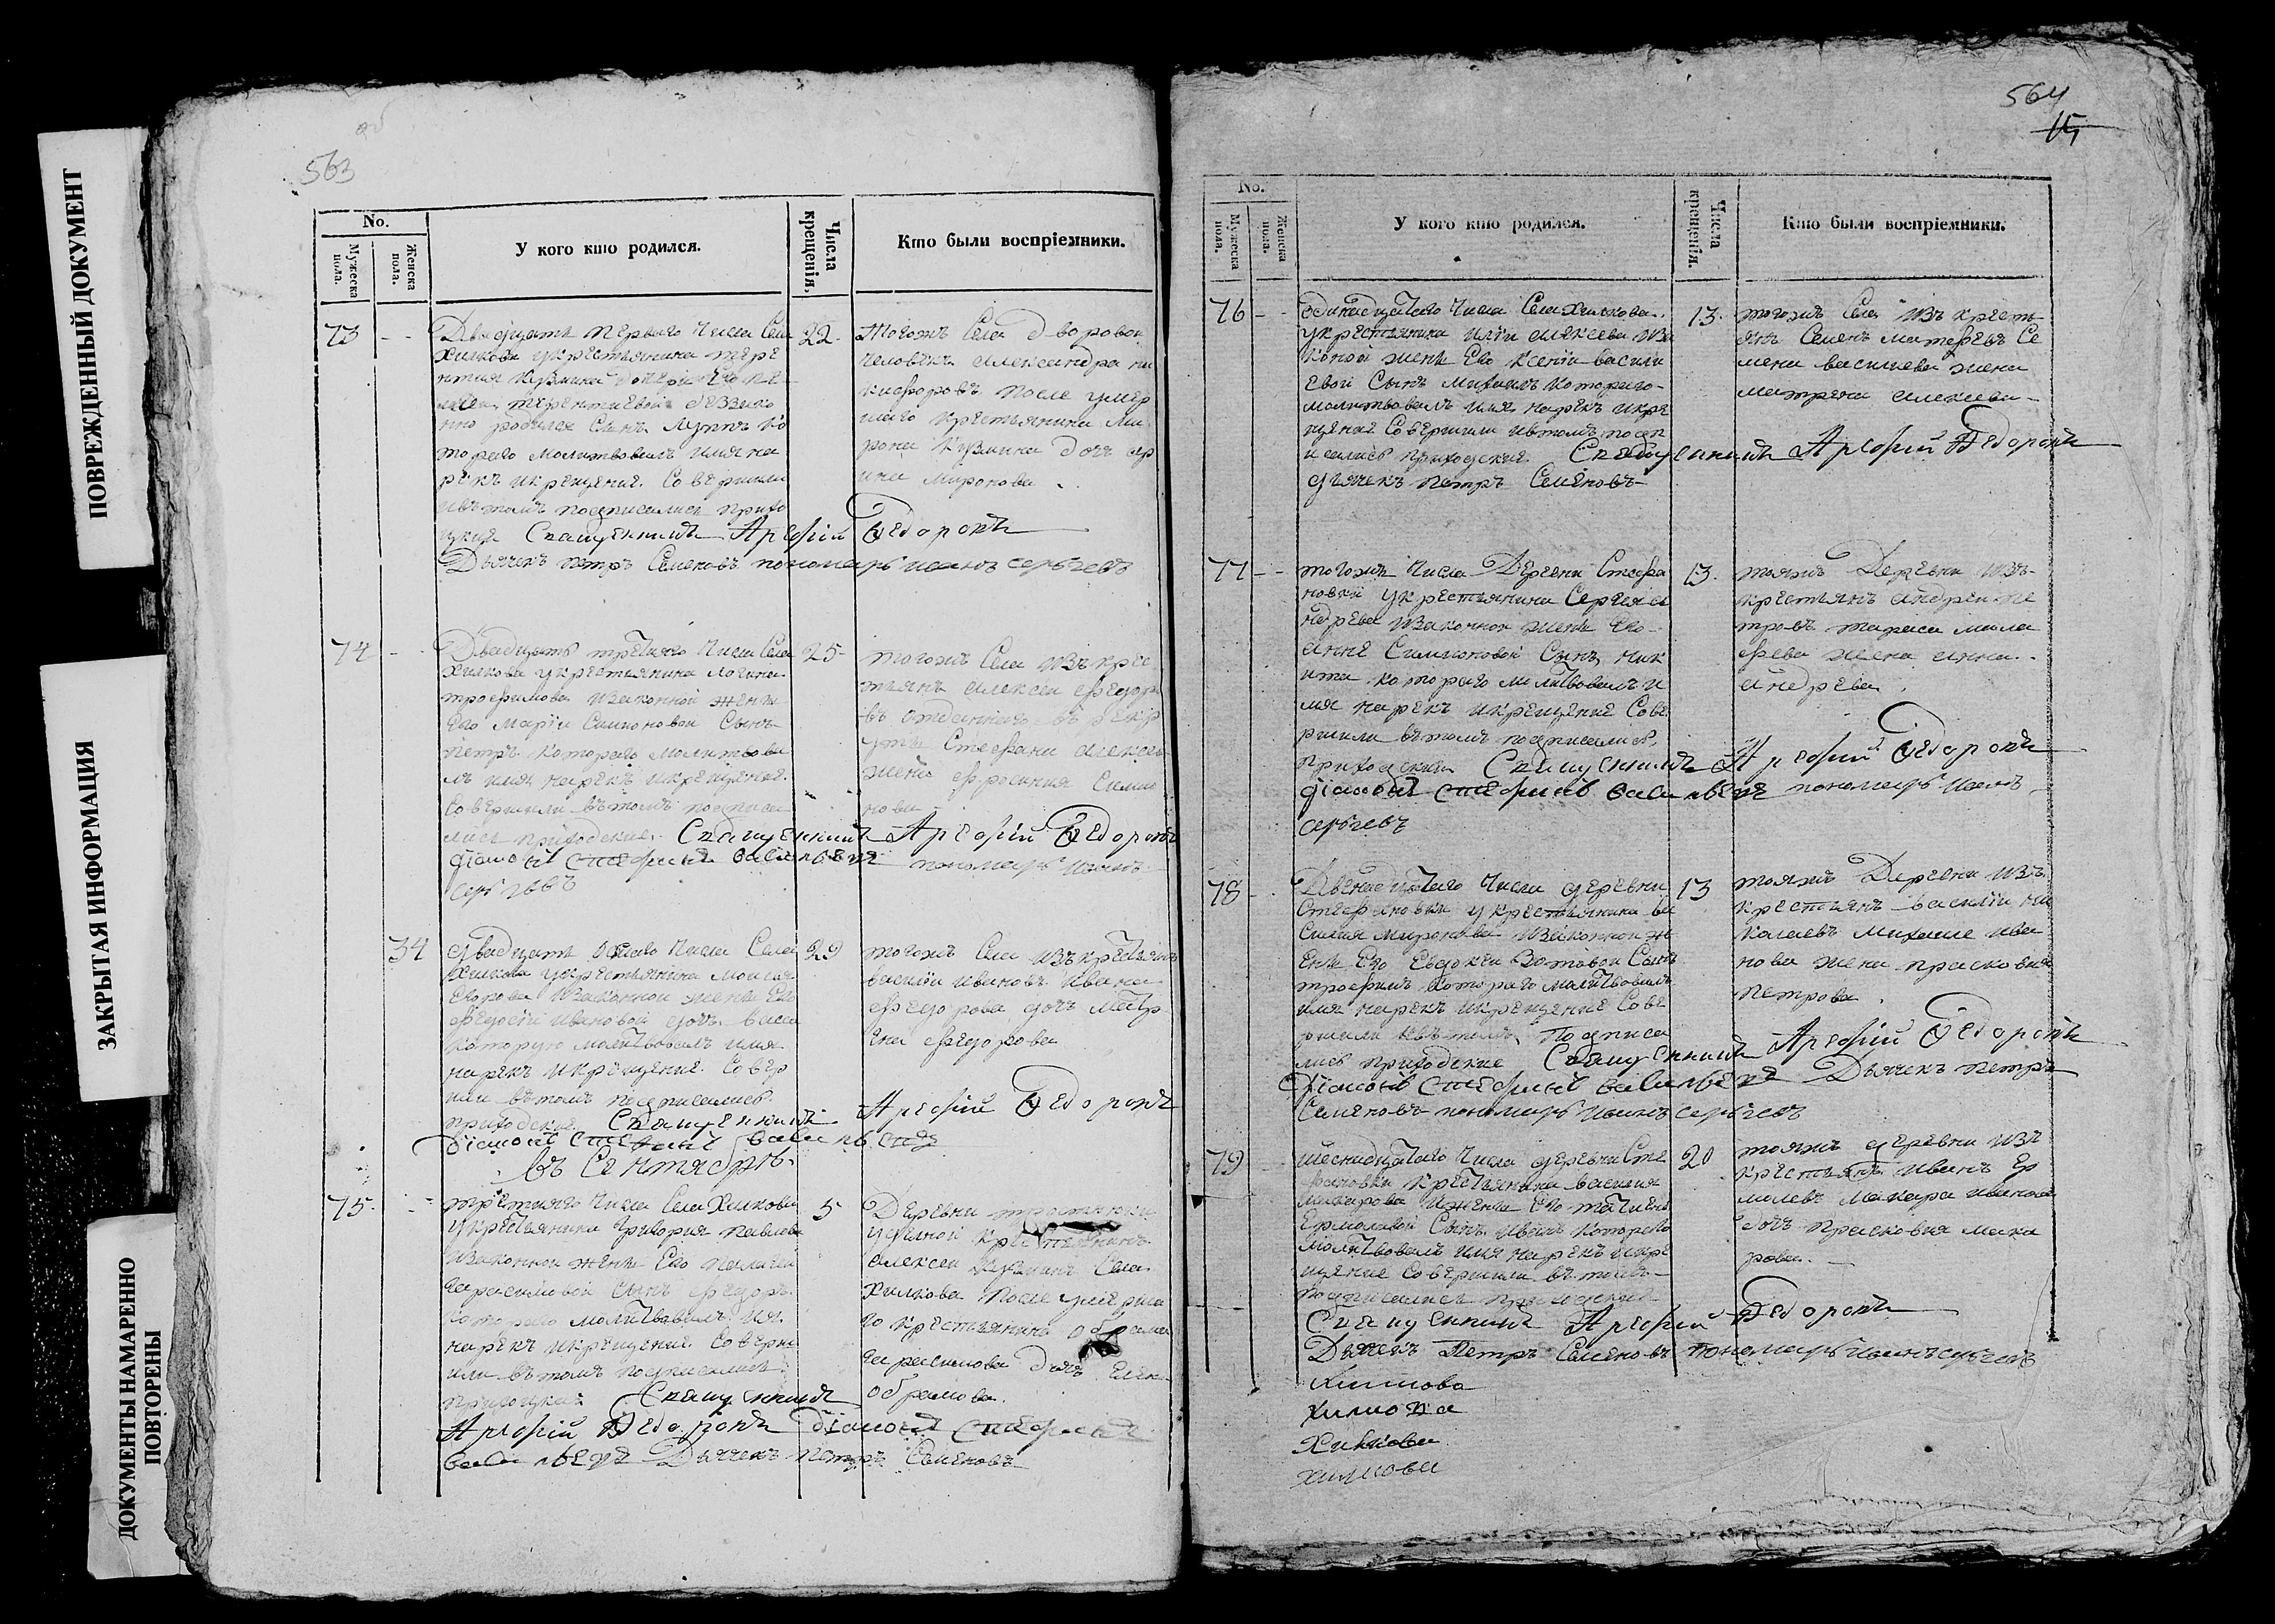 ПОВРЕЖДЕННЫЙ ДОКУМЕНТ
ЗАКРЫТАЯ ИНФОРМАЦИЯ
ДОКУМЕНТЫ НАМАРЕННО
ПОВТОРЕНЫ
об
563
No.
Мужеска пола.
Женска пола.
У кого кто родился.
Числа крещенія.
Кто были воспріемники.
73
Двадцать перваго числа Села
Хилкова у крестьянина Тере
нтия Кузмина дочери Его
Терентиевой беззако
нно родился Сынъ Луппъ ко
тораго молитвовалъ имя на
рекъ и крещение Совершили
и втомъ подписались прихо
цкие Священникъ Арефій Ѳедоровъ
Дьячекъ Петръ Семеновъ пономарь Иванъ Сергеевъ
22
Тогожъ Села дворовои
человекъ Александра Ни
кифоровъ после умер
шаго крестьянина Ми
рона Кузмина дочь Ир
ина Миронова
74
Двадцать третияго числа Села
Хилкова у крестьянина Логина
Трофимова и законной жены
Его Марии Симоновой Сынъ
Петръ котораго молитвова
лъ имя нарекъ и крещение
Совершили втомъ подписа
лися приходские Священникъ Арефій Ѳедоровъ
діаконъ Стефанъ Васильевъ пономарь Иванъ
Сергеевъ
25
тогожъ Села изъ крес
тьянъ Алексеи Федоро
въ отданнаго въ рекр
уты Стефана Алексее
жена Афросиния Симо
нова
34
Двадцать осмаго числа Села
Хилкова у крестьянина Моисея
Егорова и законной жены Его
Федосии Ивановой дочь Васса
которую молитвовалъ имя
нарекъ и крещение Совер
шили втомъ подписались
приходские Священникъ Арефій Ѳедоровъ
діаконъ Стефанъ Васильевъ
29
тогожъ Села изъ крестьянъ
Василий Ивановъ Ивана
Федорова дочь Матр
ена Федорова
въ Сентябрь
75
третияго числа Села Хилкова
у крестьянина Григория Павлова
и законной жены Его Пелагеи
Герасимовой Сынъ Федоръ
котораго молитвовалъ имя
нарекъ и крещение Соверш
или втомъ подписались
прихоцкие Священникъ
Арефій Ѳедоровъ діаконъ Стефанъ
Васильевъ Дьячекъ Петръ Семеновъ
5
Деревни
уделной крестьянинъ
Алексеи Кузминъ Села
Хилкова после умерша
го крестьянина Обрама
Герасимова дочь Елен
Обрамова
564
15
No.
Мужеска пола.
Женска пола.
У кого кто родился.
Числа крещенія.
Кто были воспріемники.
76
одинадцатаго числа Села Хилкова
у крестьянина Илии Алексеева и за
конной жены Его Ксении Васили
евой Сынъ Михаилъ котораго
молитвовалъ имя нарекъ и кре
щение Совершили и втомъ подп
исались приходские Священникъ Арефій Ѳедоровъ
дьячекъ Петръ Семеновъ
13
тогожъ Села изъ кресть
янъ Семенъ Матефевъ Се
мена Васильева жена
Матрена Алексеева
77
тогожъ числа Деревни Стефа
новки у крестьянина Сергея А
ндреева и законнои жены Его
Анне Симионовой Сынъ Ник
ита котораго молитвовалъ и
мя нарекъ и крещение Сове
ршили втомъ подписались
приходския Священникъ Арефій Ѳедоровъ
діаконъ Стефанъ Васильевъ пономарь Иванъ
Сергеевъ
13
тояжъ Деревни изъ
крестьянъ Андреи Пе
тровъ Тараса Мала
фева жена Анна
Андреева
78
Двенадцатаго числа деревни
Стефановки у крестьянина Ва
силия Миронова и законнои ж
ены Его Евдокеи Зотовои Сынъ
Трофимъ котораго молитвовалъ
имя нарекъ и крещение Сове
ршили и втомъ подписа
лись приходские Священникъ Арефій Ѳедоровъ
діаконъ Стефанъ Васильевъ Дьячекъ Петръ
Семеновъ пономарь Иванъ Сергеевъ
13
тояжъ Деревни изъ
крестьянъ Василий Ни
колаевъ Михаиле Ива
нова жена Прасковия
Петрова
79
шеснадцатаго числа деревни Сте
фановки крестьянина Василия
Макарова и жены Его Татияны
Ермолавой Сынъ Иванъ котораго
молитвовалъ имя нарекъ и кре
щение Совершили въ томъ
подписались приходския
Священникъ Арефій Ѳедоровъ
Дьячекъ Петръ Семеновъ пономарь Иванъ Сергеевъ
20
тояжъ деревни изъ
крестьянъ Иванъ Ер
молевъ Макара Иванова
дочь Прасковия Мака
рова
Хилкова
Хилкова
Хилкова
Хилкова